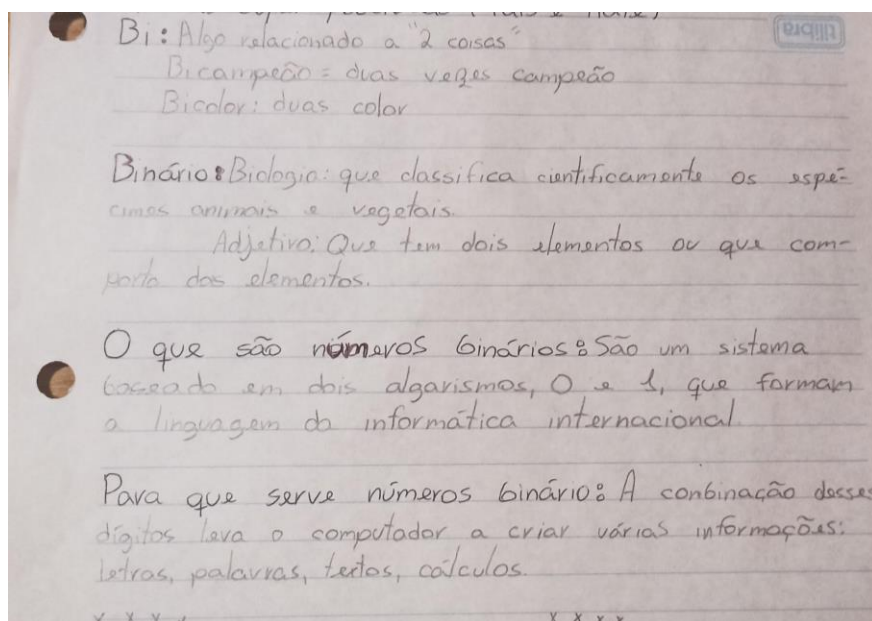 tilibra
Bi: Algo relacionado a "2 coisas"
Bicampeão = duas vezes campeão
Bicolor: duas color
Binário: Biologia: que classifica cientificamente os espé-
cimes animais e vegetais.
Adjetivo: Que tem dois elementos ou que com-
porta dos elementos.
O que são números binários: São um sistema
baseado em dois algarismos, 0 e 1, que formam
a linguagem da informática internacional.
Para que serve números binário: A conbinação desses
dígitos leva o computador a criar várias informações:
letras, palavras, textos, cálculos.
x x x x x x x